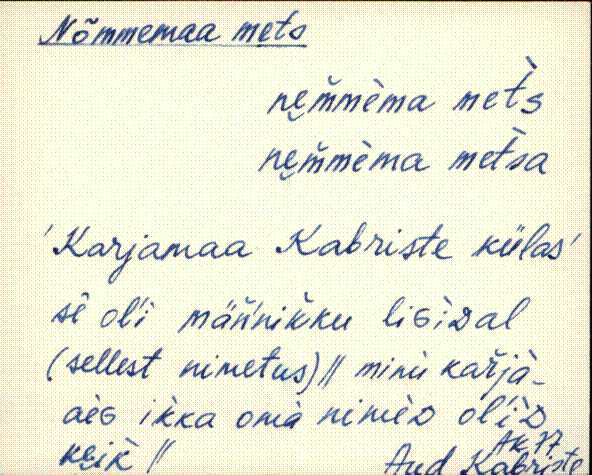 Nõmmemaa mets
ne̮m̆mèma met̀s
ne̮m̆mèma met̀sa
'Karjamaa Kabriste külas'
sē ol'i män̆'nik̆ku liɢìᴅal
(sellest nimetus) // minù kar̆jà-
aèɢ ik̆ka omà nimèᴅ ol'ìᴅ
ke̮ik̀ //
AK 77
Aud Kabriste